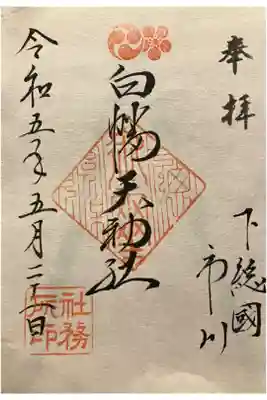 奉拝
下総國
市川
白幡天神社
令和五年五月二十五日
社務所印